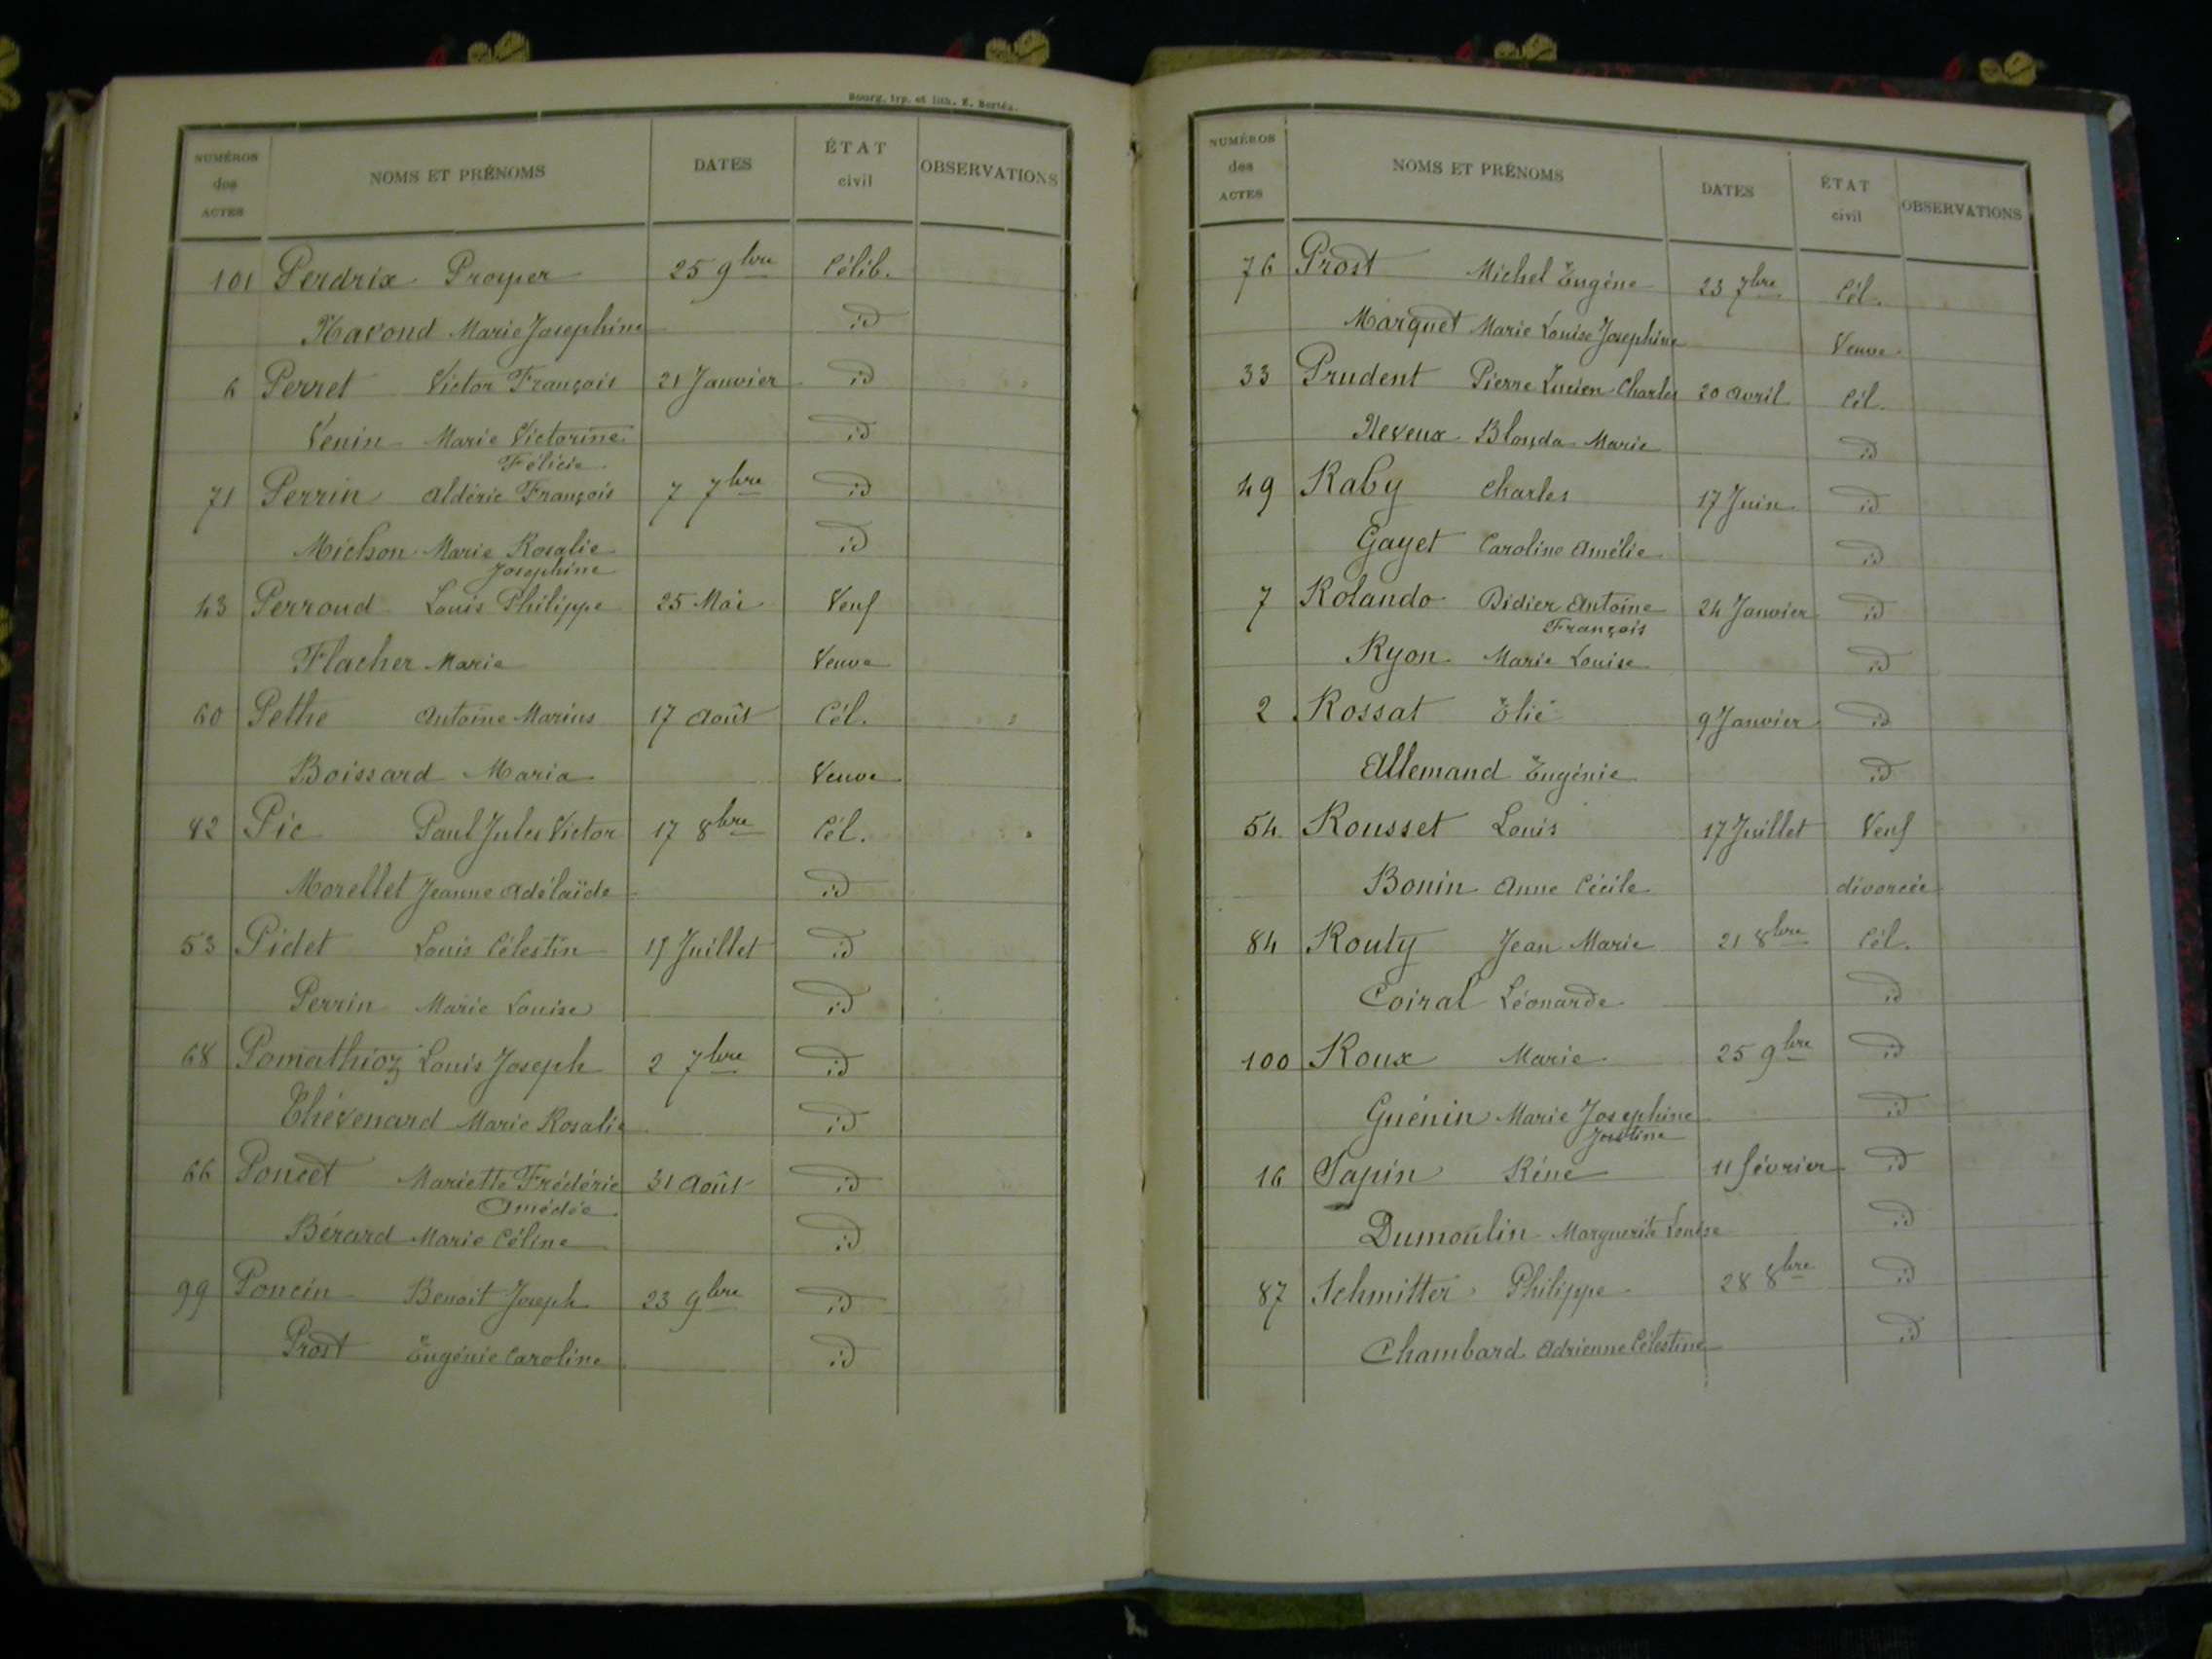 Bourg, typ. et lith. E. Bertéa.
NUMÉROS des ACTES NOMS ET PRÉNOMS DATES ÉTAT civil OBSERVATIONS
101 Perdrix Prosper 25 9bre Célib.
Marie Josephine id
6 Perret Victor François 21 Janvier id
Venin Marie Victorine id
Félicie
71 Perrin Aldéric François 7 7bre id
Michon Marie Rosalie id
Josephine
43 Perroud Louis Philippe 25 Mai Veuf
Flacher Marie Veuve
60 Pethe Antoine Marius 17 Août Cél.
Boissard Maria Veuve
82 Pic Paul Jules Victor 17 8bre Cél.
Morellet Jeanne Adélaïde id
53 Pidet Louis Célestin Juillet id
Perrin Marie Louise id
68 Pomathioz Louis Joseph 2 7bre id
Thévenard Marie Rosalie id
66 Poncet Mariette Frédéric 31 Août id
Amédée
Bérard Marie Céline id
99 Poncin Benoit Joseph 23 9bre id
Prost Eugénie Caroline id
NUMÉROS des ACTES NOMS ET PRÉNOMS DATES ÉTAT civil OBSERVATIONS
76 Prost Michel Eugène 23 7bre Cél.
Marquet Marie Louise Josephine Veuve
33 Prudent Pierre Lucien Charles 20 Avril Cél.
Neveux Blonda Marie id
49 Raby Charles 17 Juin id
Gayet Caroline Amélie id
7 Rolando Didier Antoine 24 Janvier id
François
Ryon Marie Louise id
2 Rossat Elie 9 Janvier id
Allemand Eugénie id
54 Rousset Louis 17 Juillet Veuf
Bonin Anne Cécile divorcée
84 Routy Jean Marie 21 8bre Cél.
Coiral Léonarde id
100 Roux Marie 25 9bre id
Guénin Marie Josephine id
Justine
16 Sapin Réne 11 février id
Dumoulin Marguerite Louise id
87 Schmitter Philippe 28 8bre id
Chambard Adrienne Célestine id